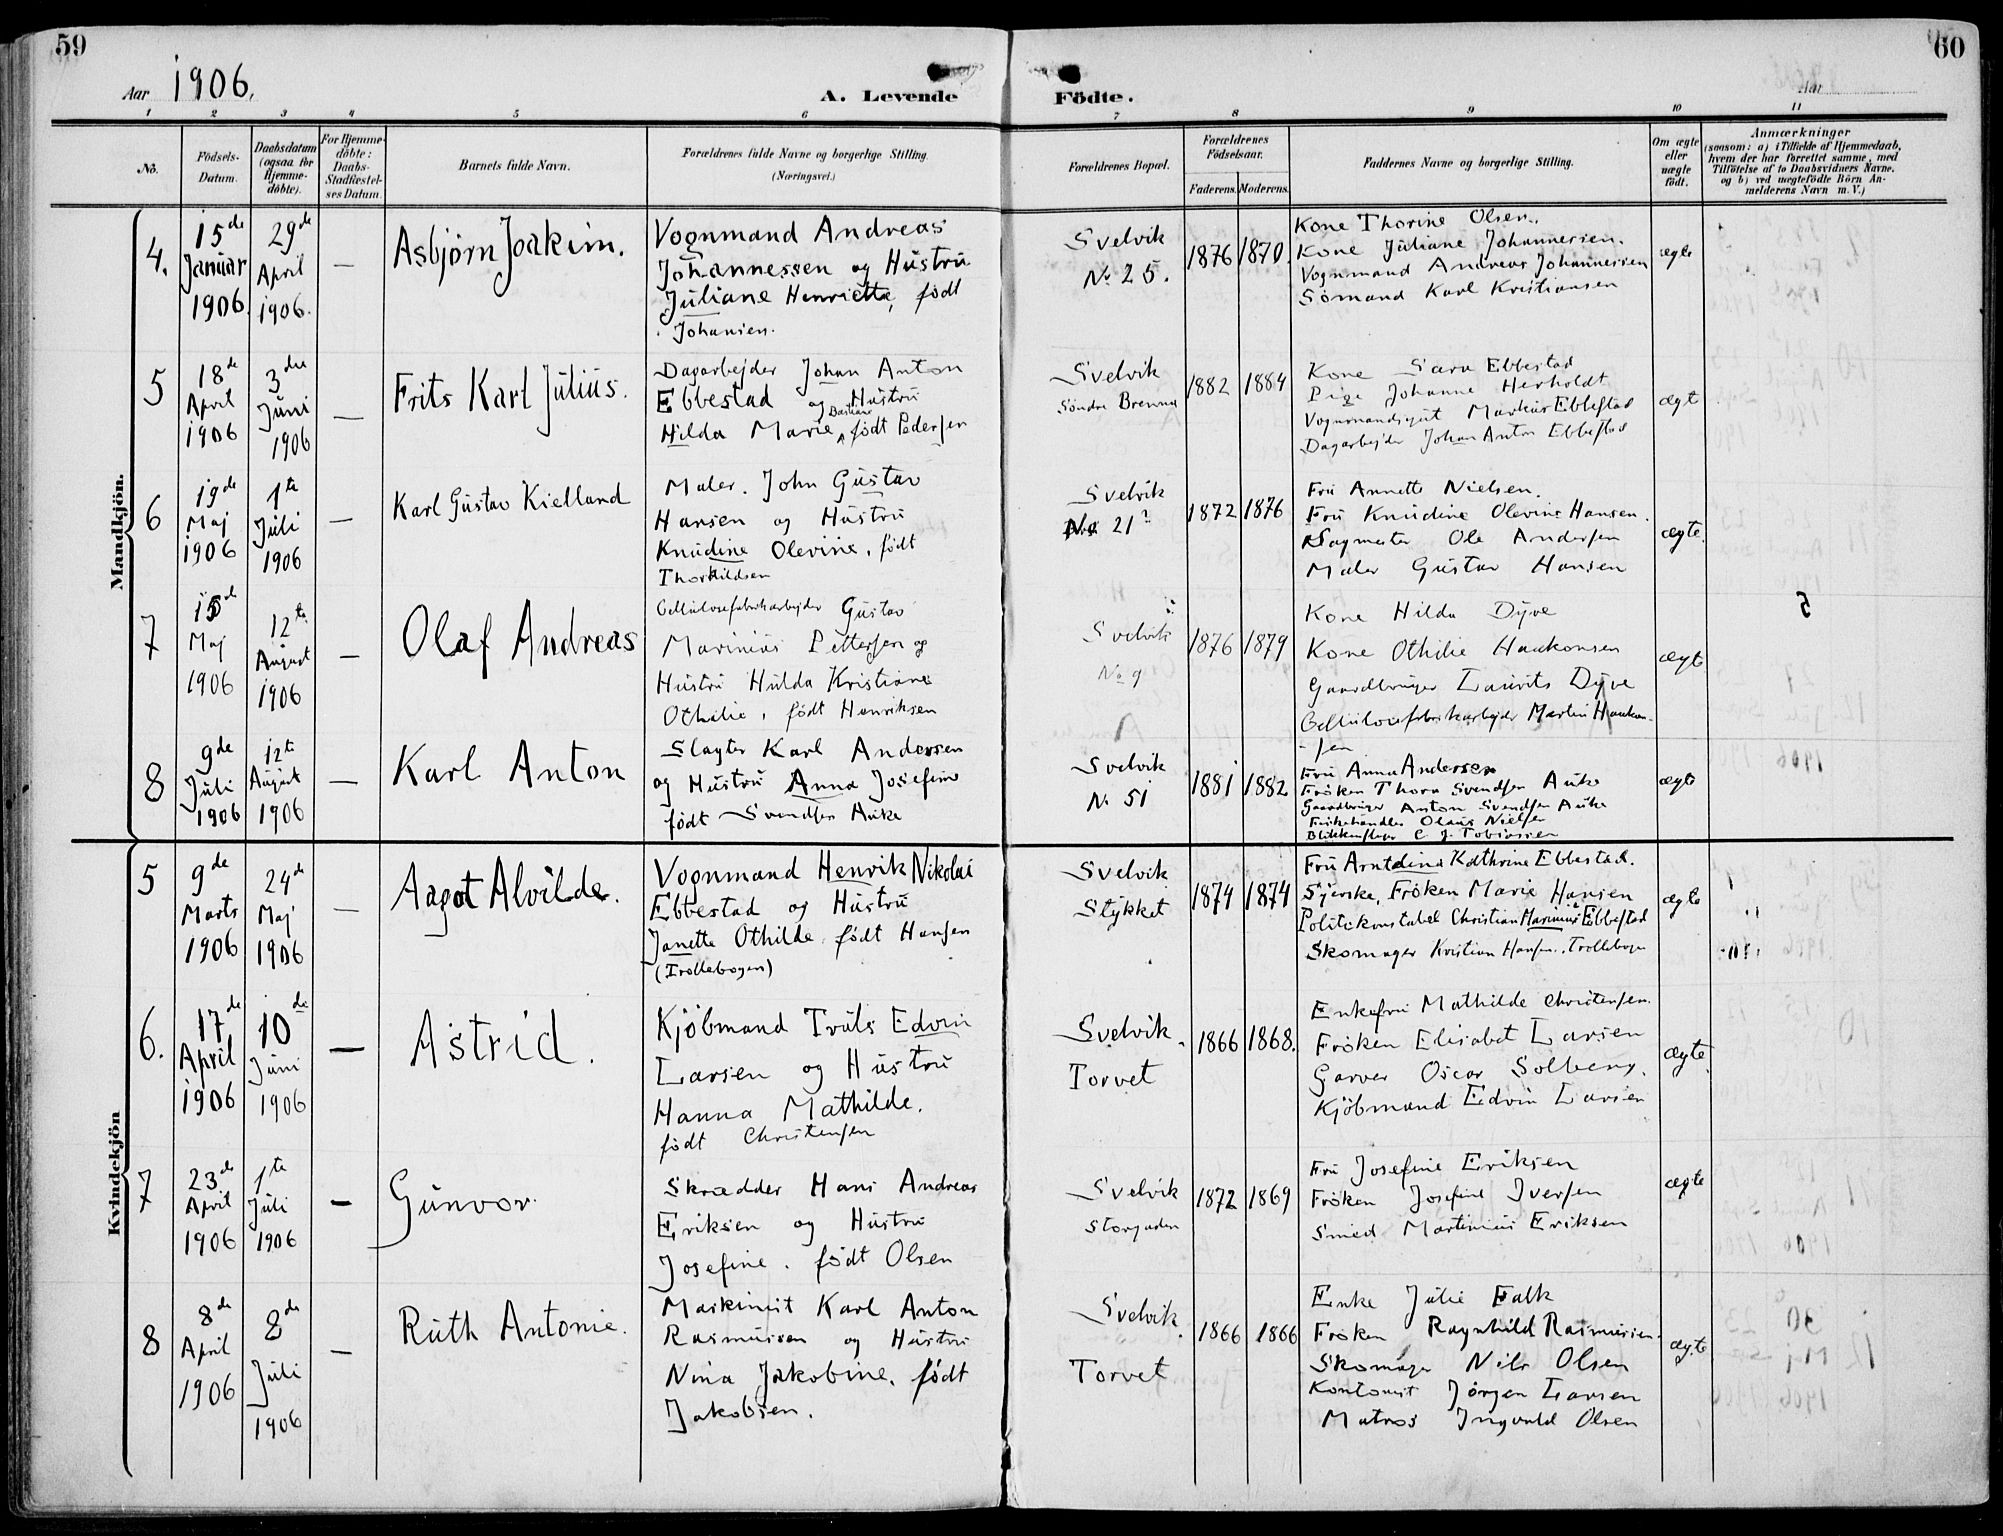 59
60
Aar 1906.
A. Levende
Födte.
Aar
1 2 3 4 5 6 7 8 9 10 11
No.
Födsels-
Datum.
Daabsdatum
(ogsaa for
Hjemme-
döbte).
For Hjemme-
döbte:
Daabs-
Stadfæstel-
ses Datum.
Barnets fulde Navn.
Forældrenes fulde Navne og borgerlige Stilling.
(Næringsvei.)
Forældrenes Bopæl.
Forældrenes
Födselsaar.
Faderens. Moderens.
Faddernes Navne og borgerlige Stilling.
Om ægte
eller
uægte
födt.
Anmærkninger
(saasom: a) i Tilfælde af Hjemmedaab,
hvem der har forrettet samme, med
Tilföielse af to Daabsvidners Navne,
og b) ved uægtefödte Börn An-
melderens Navn m. V.)
Mandkjön.
4.
15de
Januar
1906.
29de
April
1906.
—
Asbjørn Joakim.
Vognmand Andreas
Johannessen og Hustru
Juliane Henriette, født
Johansen.
Svelvik
No 25.
1876
1870.
Kone Thorine Olsen.
Kone Juliane Johannessen.
Vognmand Andreas Johannessen
Sömand Karl Kristiansen
ægte
5
18de
April
1906
3die
Juni
1906
—
Frits Karl Julius.
Dagarbejder Johan Anton
Ebbestad og Hustru
Bastiane
Hilda Marie, født Pedersen
Svelvik
Söndre Brenna
1882
1884
Kone Sara Ebbestad
Pige Johanne Herholdt
Vognmandsgut Markus Ebbestad
Dagarbejder Johan Anton Ebbestad
ægte
6
19de
Maj
1906
1te
Juli
1906
—
Karl Gustav Kielland
Maler. John Gustav
Hansen og Hustru
Knudine Olevine, født
Thorkildsen
Svelvik
No 21
1872
1876
Fru Annette Nielsen.
Fru Knudine Olevine Hansen.
Sagmester Ole Andersen
Maler Gustav Hansen
ægte.
7
15de
Maj
1906
12te
August
1906
—
Olaf Andreas
Cellulosefabrikarbejder Gustav
Marinius Pettersen og
Hustru Hulda Kristiane
Othilie, født Henriksen
Svelvik
No 9
1876
1879
Kone Hilda Dyve
Kone Othilie Haakonsen
Gaardbruger Laurits Dyve
Cellulosefabrikarbejder Martin Haakon-
-sen
ægte
8
9de
Juli
1906
12te
August
1906
—
Karl Anton
Slagter Karl Andersen
og Hustru Anna Josefine
født Svendsen Auke
Svelvik
No 51
1881
1882
Fru Anna Andersen
Fröken Thora Svendsen Auke
Gaardbruger Anton Svendsen Auke
Fiskehandler Olaus Nielsen
Blikkenslager C. J. Tobiassen
ægte
Kvindekjön
5
9de
Marts
1906
24de
Maj
1906
—
Aagot Alvilde.
Vognmand Henrik Nikolai
Ebbestad og Hustru
Janette Othilde, født Hansen
(Trollebogen)
Svelvik
Stykket
1874
1874
Fru Arntdina Kathrine Ebbestad.
Syerske, Fröken Marie Hansen
Politikonstabel Christian Marinius Ebbestad
Skomager Kristian Hansen, Trollebogen
ægte
6.
17de
April
1906
10de
Juni
1906
—
Astrid.
Kjöbmand Truls Edvin
Larsen og Hustru
Hanna Mathilde.
født Christensen
Svelvik.
Torvet
1866
1868.
Enkefru Mathilde Christensen.
Fröken Elisabet Larsen
Garver Oscar Solberg.
Kjöbmand Edvin Larsen
ægte.
7
23de
April
1906
1te
Juli
1906
—
Gunvor
Skrædder Hans Andreas
Eriksen og Hustru
Josefine. født Olsen
Svelvik
Storgaden
1872
1869
Fru Josefine Eriksen
Fröken Josefine Iversen
Smed Martinius Eriksen
ægte
8
8de
April
1906
8de
Juli
1906
—
Ruth Antonie.
Maskinist Karl Anton
Rasmussen og Hustru
Nina Jakobine. født
Jakobsen.
Svelvik.
Torvet
1866
1866
Enke Julie Falk
Fröken Ragnhild Rasmussen.
Skomager Nils Olsen
Kontorist Jörgen Larsen
Matros Ingvald Olsen
ægte